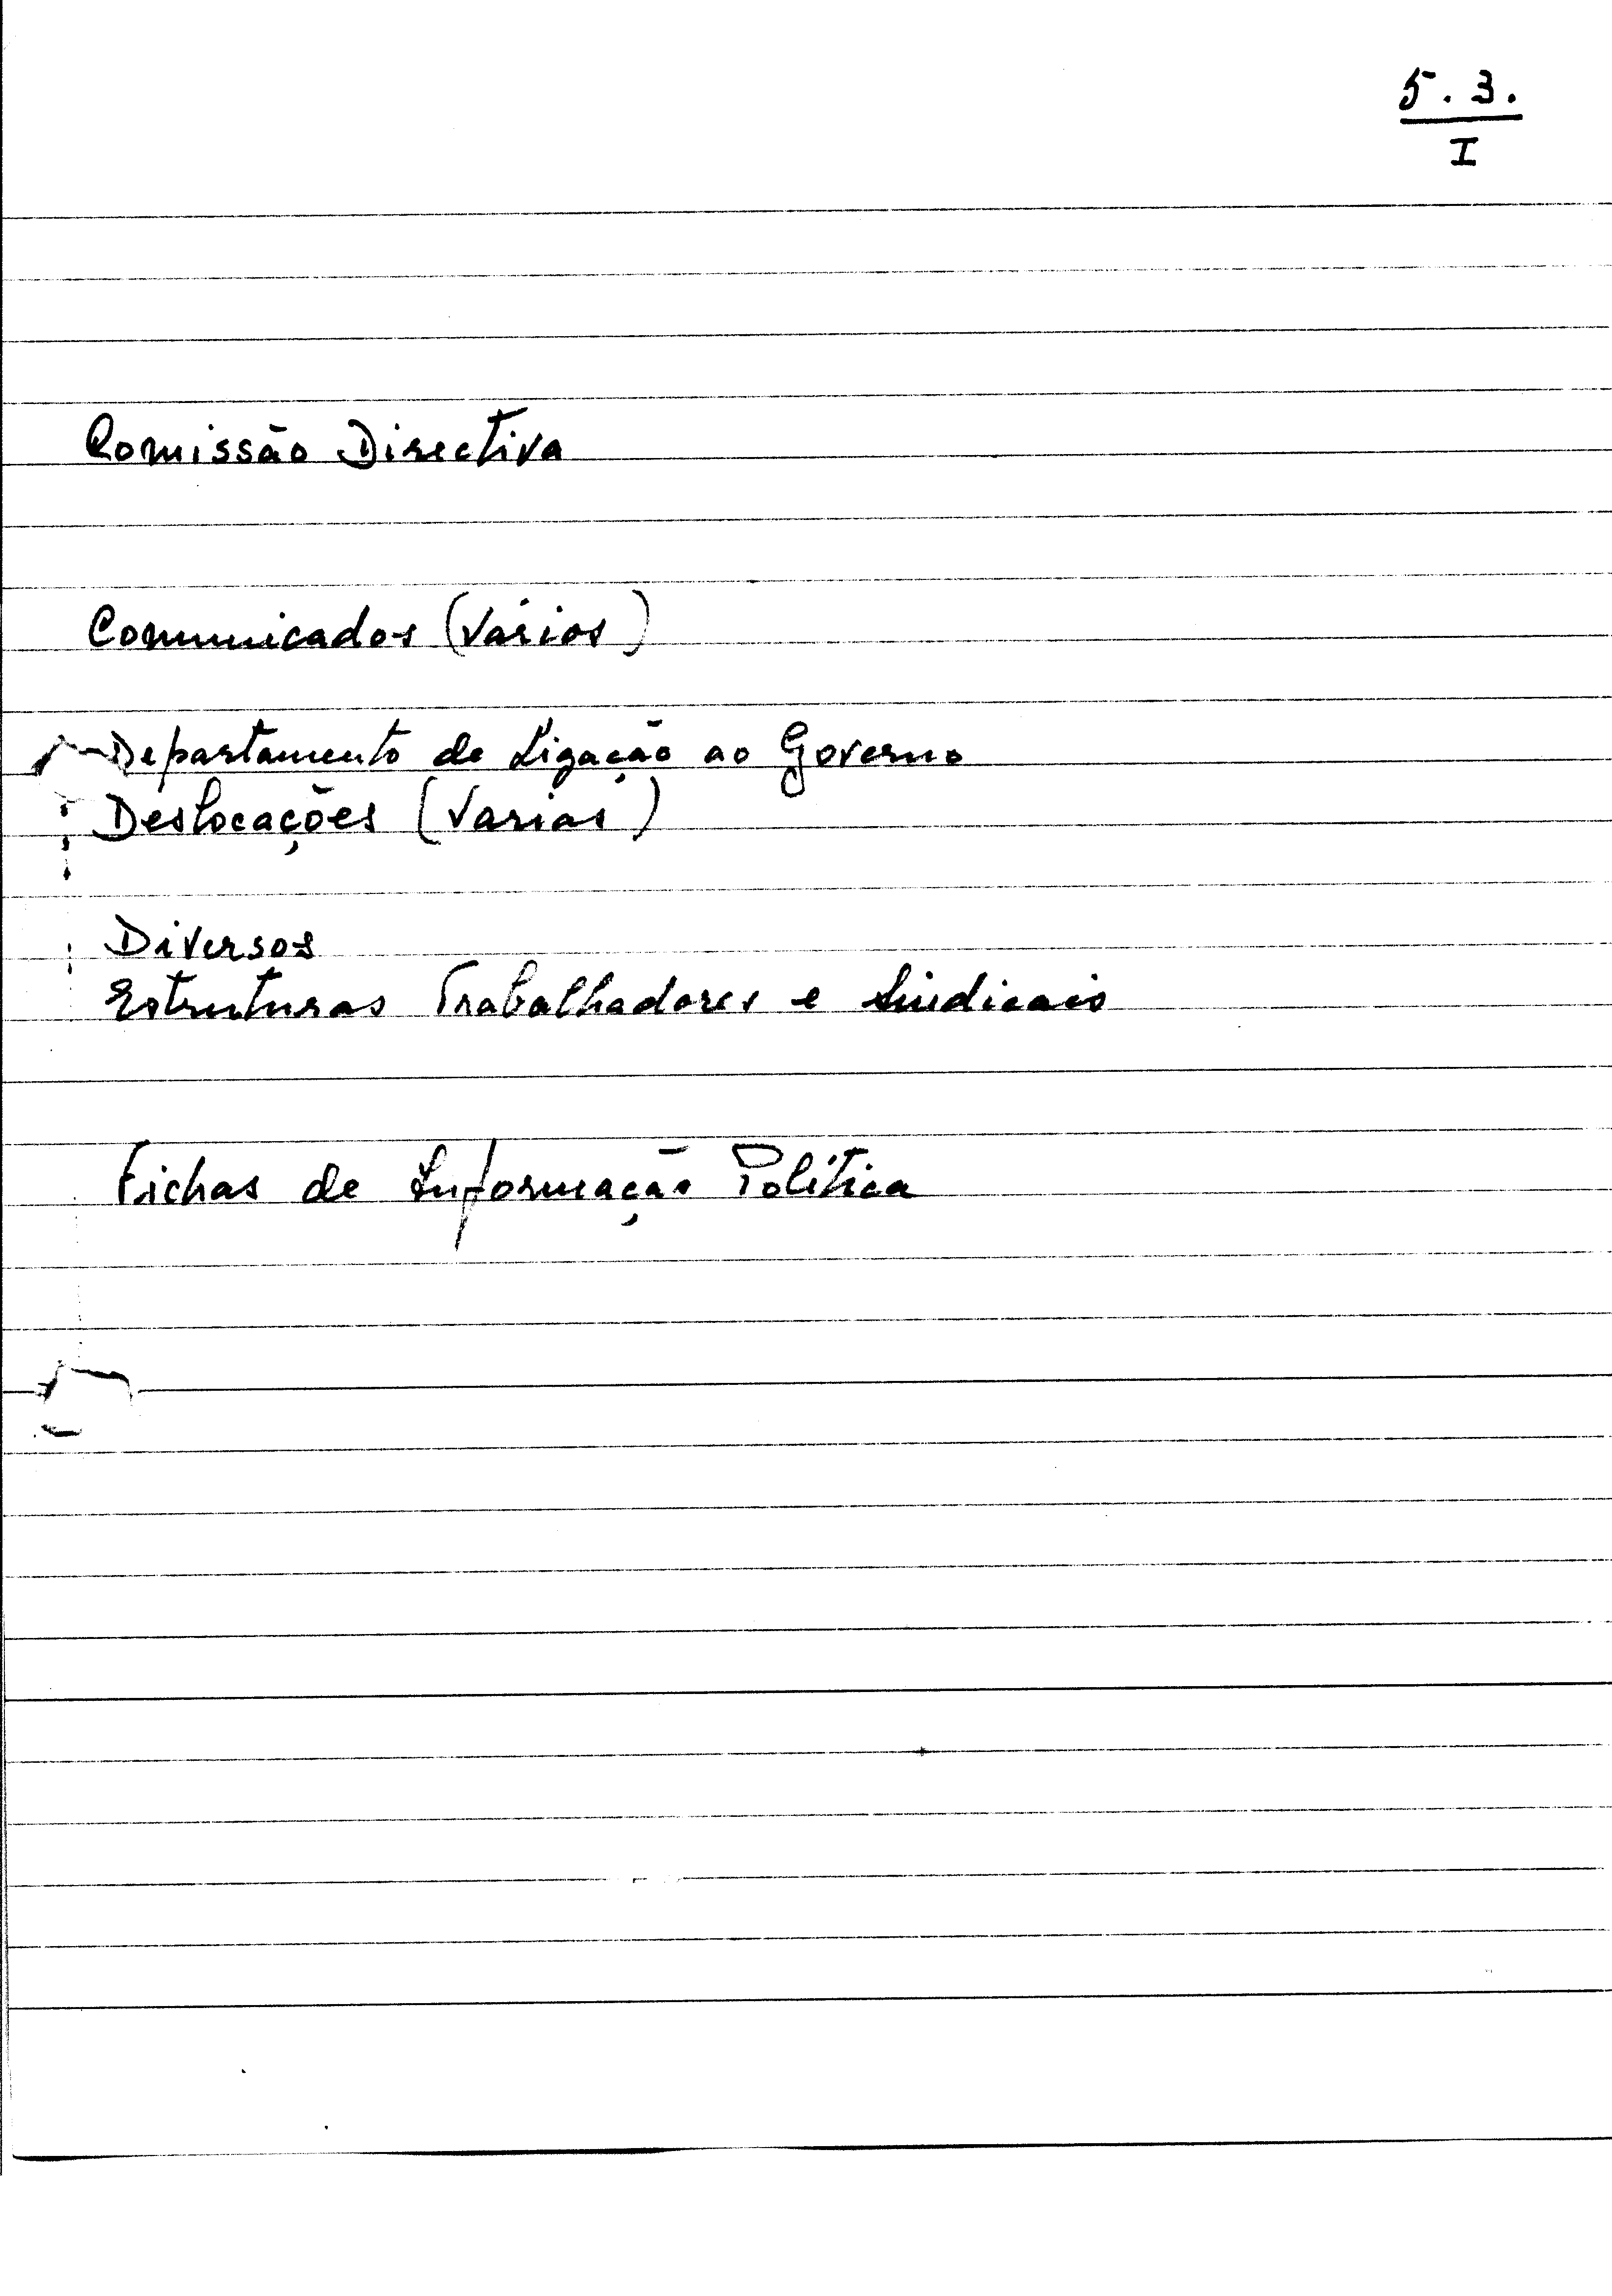 5.3.
I
Comissão Directiva
Comunicados (Vários)
Departamento de Ligação ao Governo
Deslocações (Varias)
Diversos
Estruturas Trabalhadores e Sindicais
Fichas de Informação Política